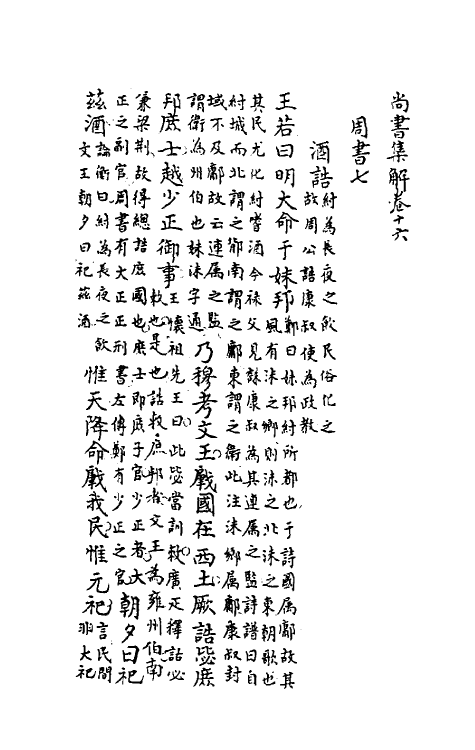 尚書集解卷十六
周書七
酒誥紂為長夜之飲民俗化之
故周公誥康叔使為政教
王若曰明大命于妹邦鄭曰妹邦紂所都也于詩國属鄘故其
風有沬之鄉則沬之北沬之東朝歌也
其民尤化紂嗜酒今祿父見誅康叔為其連属之監詩譜曰自
紂城而北謂之邶南謂之鄘東謂之衛此注沬鄉属鄘康叔封
域不及鄘故云連属之監
謂衛為州伯也妹沬字通乃穆考文王厥國在西土厥誥毖庶
邦庶士越少正御事王懷祖先王曰此毖當訓敕廣疋釋詁必
敕也是也誥敕庶邦者文王為雍州伯南
兼梁荆故得總誥庶國也庶士即庶子官少正者大
正之副官周書有大正正刑書左傳鄭有少正之官朝夕曰祀
茲酒論衡曰紂為長夜之飲
文王朝夕曰祀茲酒惟天降命厥我民惟元祀言民間
非大祀